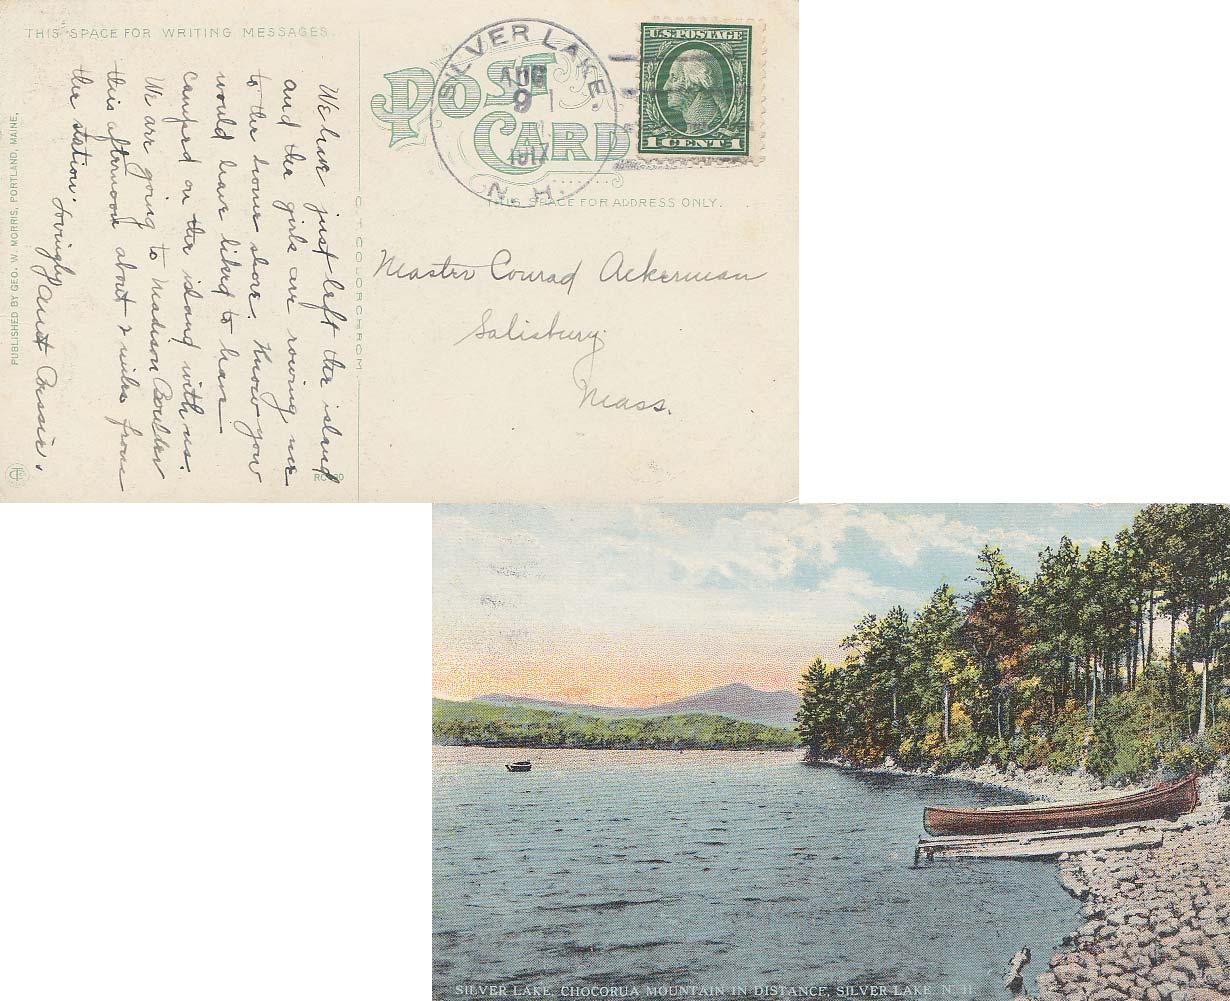 THIS SPACE FOR WRITING MESSAGES.
POST CARD
SILVER LAKE,
AUG
9
1917
N. H.
U.S. POSTAGE
1 CENT 1
THIS SPACE FOR ADDRESS ONLY.
PUBLISHED BY GEO. W. MORRIS, PORTLAND, MAINE,
C. T. COLORCHROM.
We have just left the island
and the girls are rowing me
to the home shore. Know you
would have liked to have
camped on the island with us.
We are going to Madison
this afternoon about 2 miles from
the station. Lovingly Aunt Bessie.
Master Conrad Ackerman
Salisbury
Mass.
SILVER LAKE, CHOCORUA MOUNTAIN IN DISTANCE, SILVER LAKE, N. H.